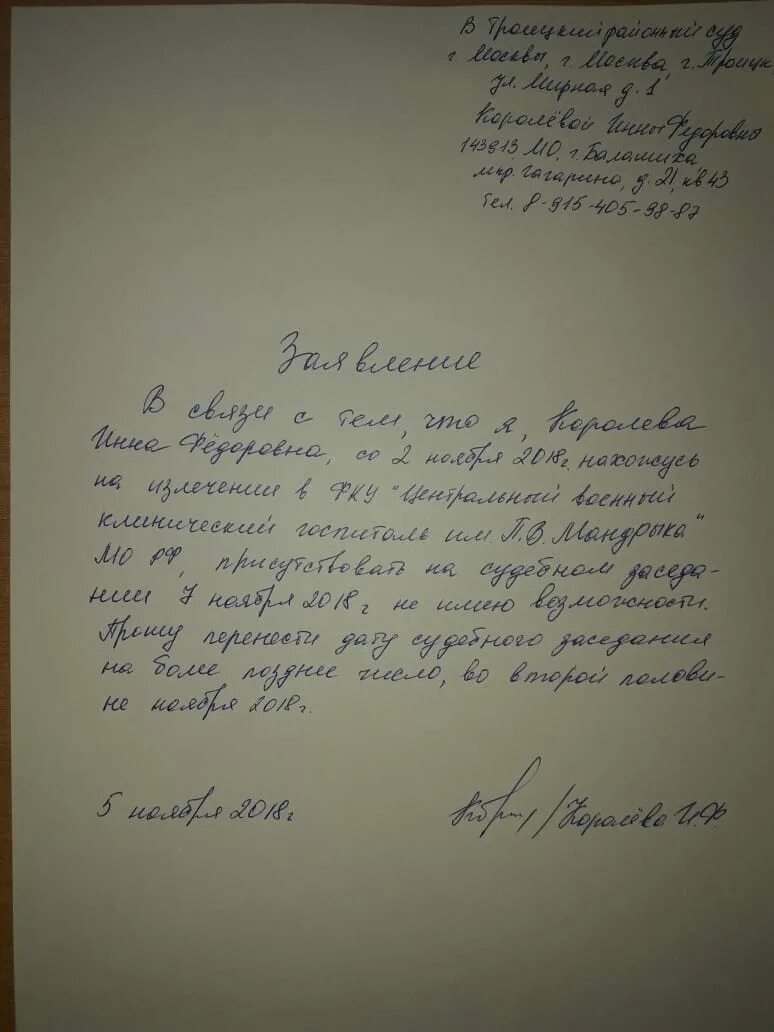 В Троицкий районный суд
г. Москвы, г. Москва, г. Троицк
ул. Мирная д. 1
Королёвой Инны Федоровны
143913 МО, г. Балашиха,
мкр. Гагарина, д. 21, кв 43
тел. 8-915-405-98-87
Заявление
В связи с тем, что я, Королева
Инна Фёдоровна, со 2 ноября 2018г. нахожусь
на излечении в ФКУ "Центральный военный
клинический госпиталь им. П.В. Мандрыка"
МО РФ, присутствовать на судебном заседа-
нии 7 ноября 2018г не имею возможности.
Прошу перенести дату судебного заседания
на более позднее число, во второй полови-
не ноября 2018г.
5 ноября 2018г
/Королёва И.Ф.